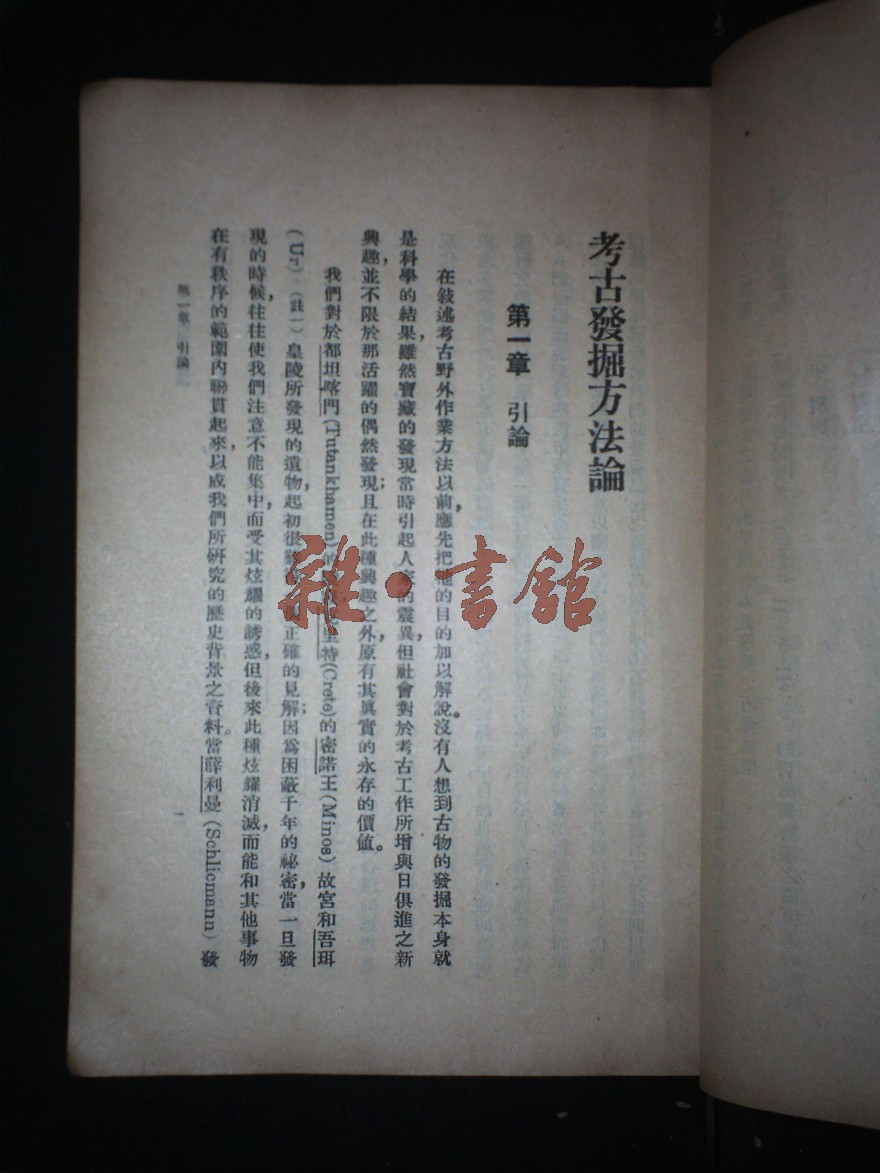 考古發掘方法論
第一章 引論
在敍述考古野外作業方法以前，應先把牠的目的加以解說。沒有人想到古物的發掘本身就
是科學的結果，雖然寶藏的發現當時引起人家的震異，但社會對於考古工作所增與日俱進之新
興趣，並不限於那活躍的偶然發現；且在此種興趣之外，原有其眞實的永存的價値。
我們對於都坦喀門(Tutankhamen)的 里特(Crete)的密諾王(Minos)故宮和吾珥
(Ur)(註一)皇陵所發現的遺物，起初很 正確的見解，因爲困蔽千年的祕密，當一旦發
現的時候，往往使我們注意不能集中，而受其炫耀的誘惑，但後來此種炫耀消滅，而能和其他事物
在有秩序的範圍內聯貫起來，以成我們所研究的歷史背景之資料。當薛利曼(Schliemann)發
第一章 引論
一
雜·書館